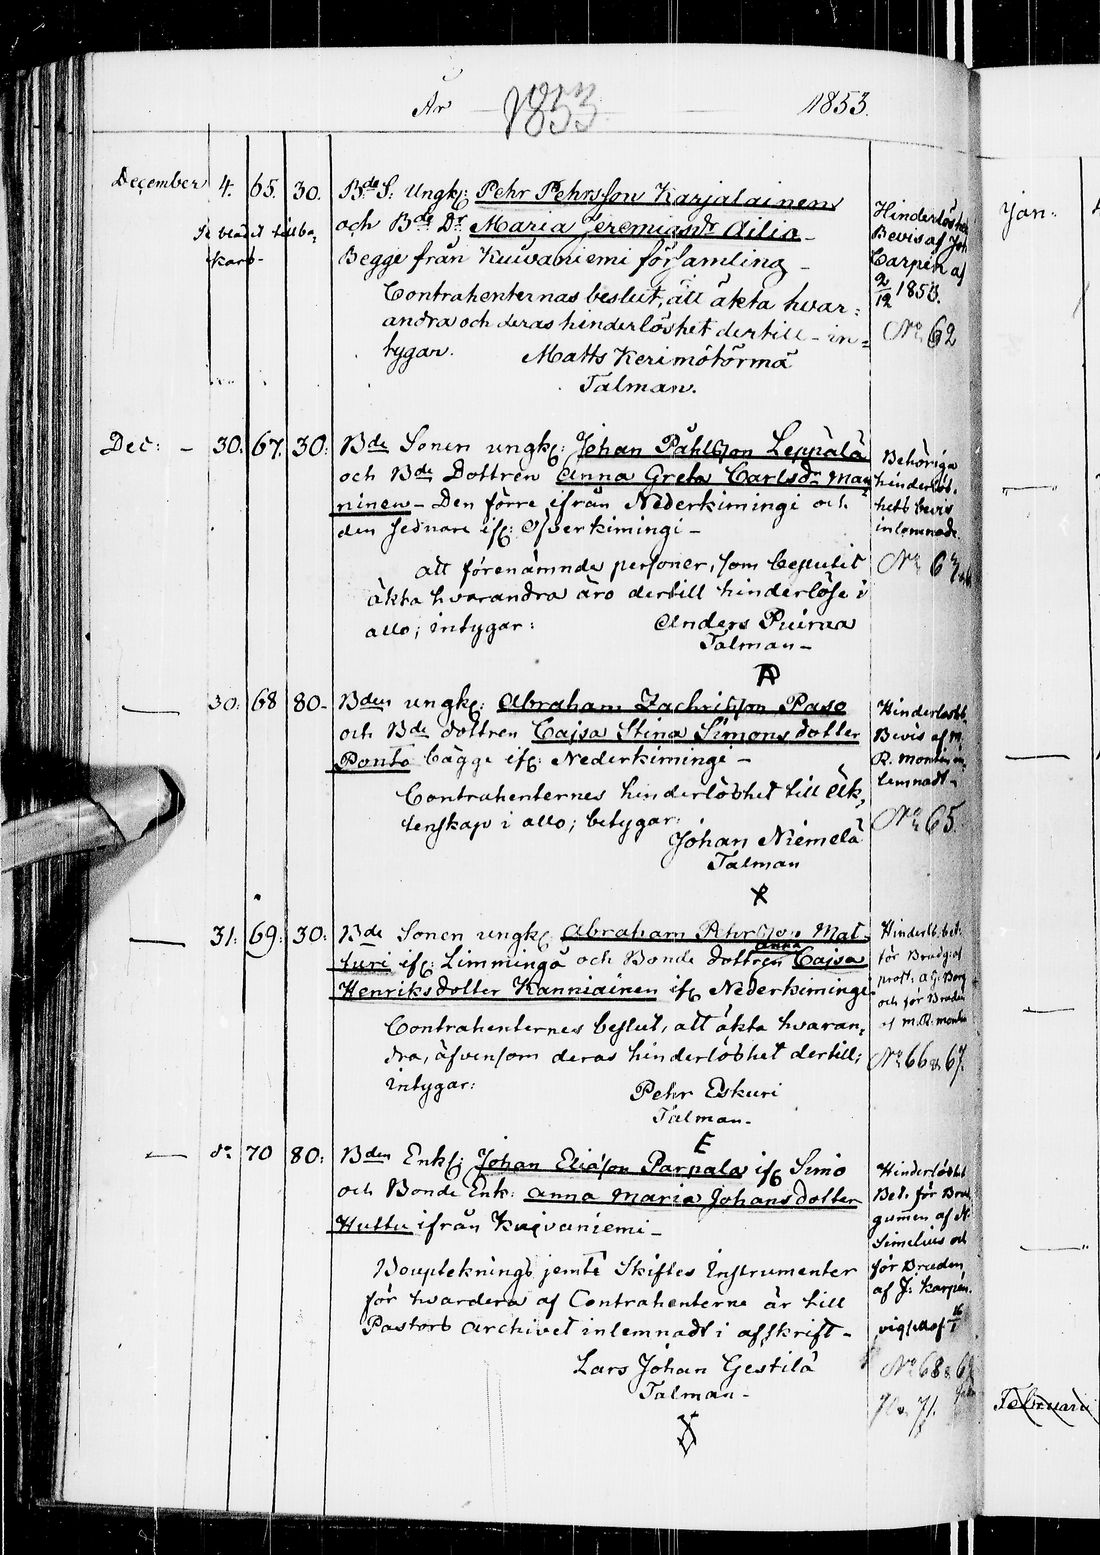 År 1853 1853.
December 4. 65. 30. Bde S. Ungk: Pehr Pehrsson Karjalainen
och Bde Dr Maria Jeremiasdr Ailio
Begge från Kuivaniemi församling
Contrahenternas beslut, att äkta hvar-
andra och deras hinderlöshet dertill in-
tygar. Matts Kerimötörmä
Talman.
Hinderlöshets
Bevis af Joh
Carpén af
2/12 1853.
No 62
Dec: 30. 67. 30. Bde Sonen ungk: Johan Påhlsson Leppälä
och Bde Dottren Anna Greta Carlsdr Man
ninen Den förre ifrån Nederkimingi och
den sednare if: Öfverkimingi
att förenämnde personer, som beslutit
äkta hvarandra äro dertill hinderlöse i
allo; intygar: Anders Puiraa
Talman
Behöriga
hinderlös-
hets bevis
inlemnade
No 63
30. 68 80 Bden ungk: Abraham Zachrisson Paso
och Bde dottren Cajsa Stina Simonsdotter
Ponto bägge if: Nederkiminge
Contrahenternes hinderlöshet till äk-
tenskap i allo; betygar:
Johan Niemelä
Talman
Hinderlösh.
Bevis af M.
R. Montin in
lemnadt
No 65.
31. 69. 30. Bde Sonen ungk: Abraham Pehrsson Mat-
turi if: Limminga och Bonde dottren Anna Cajsa
Henriksdotter Kanniainen if: Nederkiminge
Contrahenternes beslut, att äkta hvaran-
dra, äfvensom deras hinderlöshet dertill;
intygar:
Pehr Eskuri
Talman.
för Brudg: af
prost. A.G. Borg
och för Bruden
af M.R. Montin
No 66 & 67.
do 70 80. Bden Enkl: Johan Eliasson Parpala if: Simo
och Bonde Enk: Anna Maria Johansdotter
Huttu ifrån Kuivaniemi
Bouptecknings jemte Skiftes Instrumenter
för hvardera af Contrahenterne är till
Pastors Archivet inlemnadt i afskrift
Lars Johan Gestilä
Talman
Hinderlöshet
Bet. för Brud
gummen af N.
Simelius och
för Bruden
af J: Karpén.
No 68 & 69
Jan:
Februari